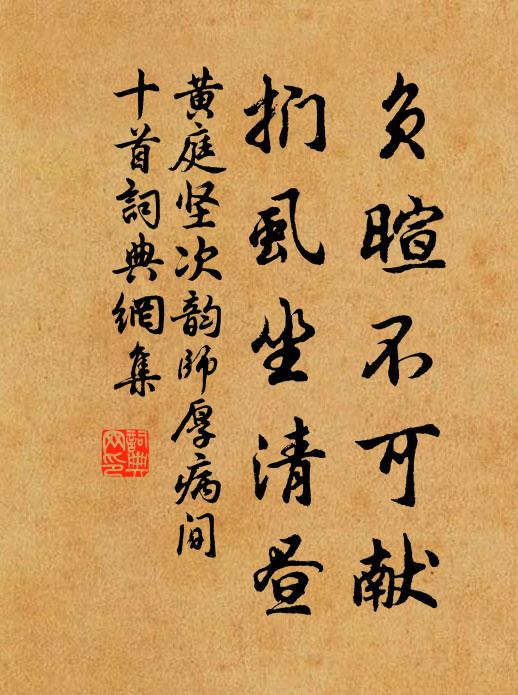 负暄不可献
扪虱坐清昼
黄庭坚次韵师厚病间
十首詞典網集
詞典
网印